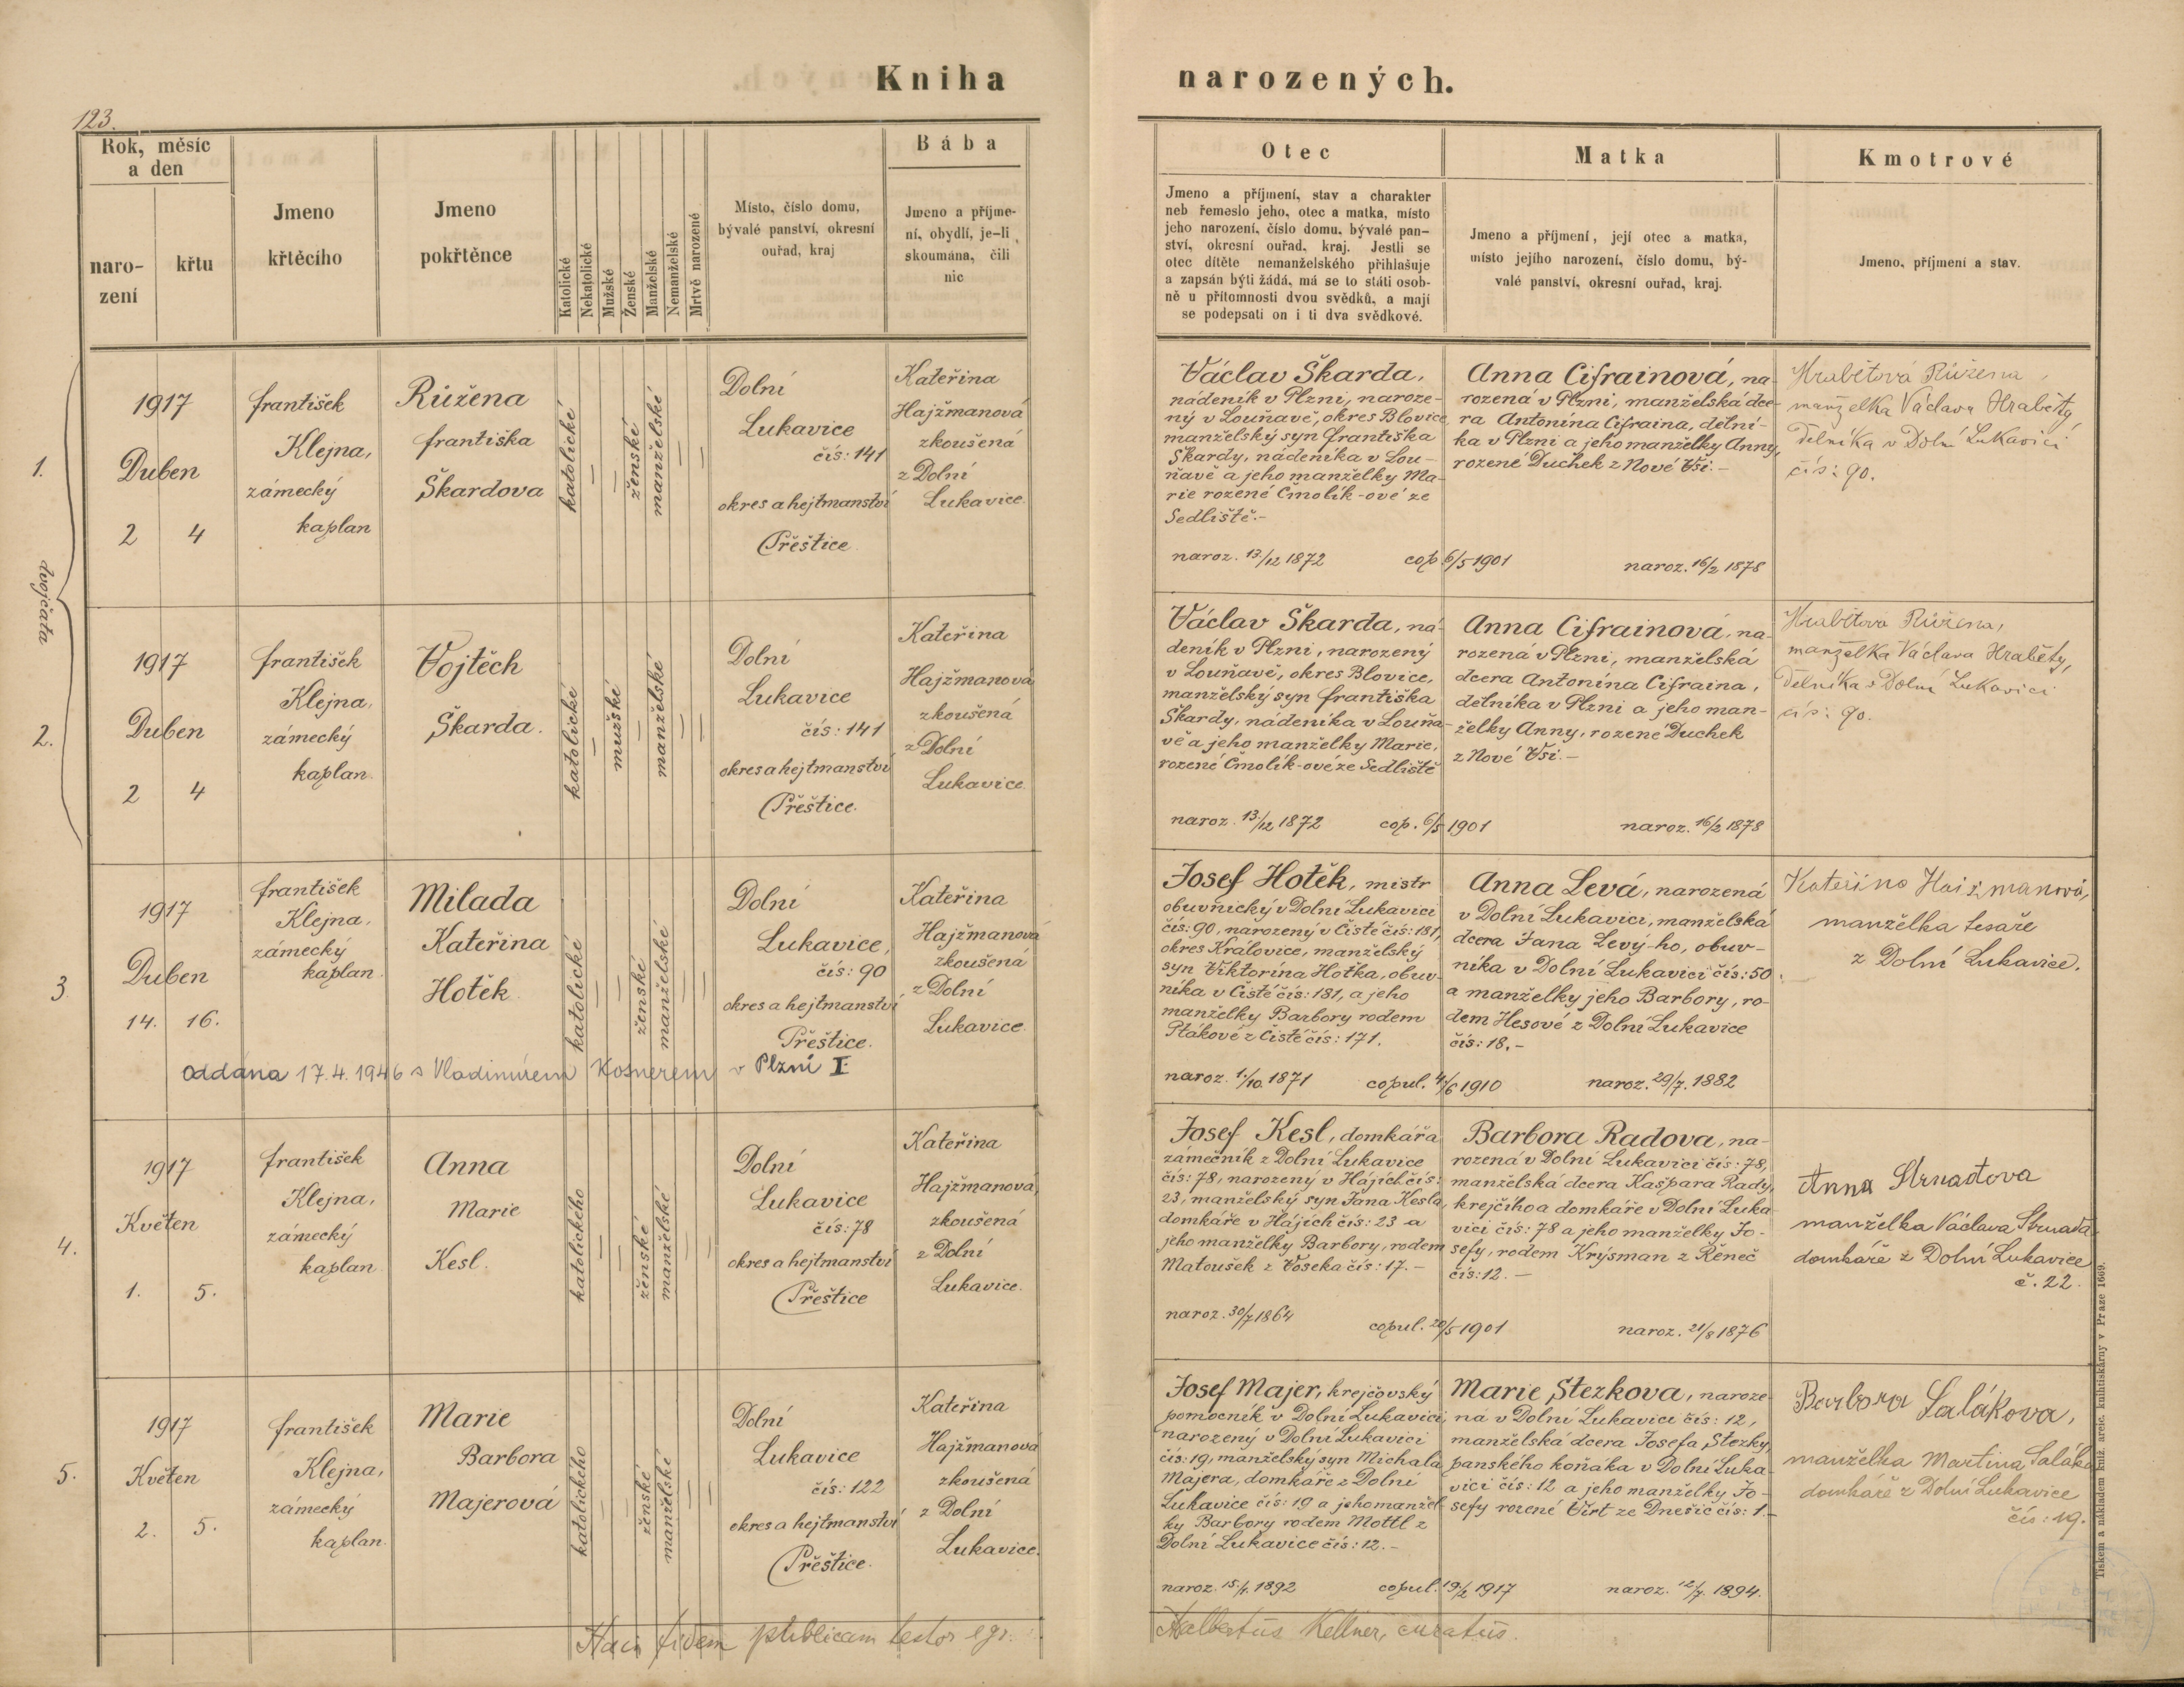 Kniha narozených.
123.
Rok, měsíc
a den
naro-
zení
křtu
Jmeno
křtěcího
Jmeno
pokřtěnce
Katolické
Nekatolické
Mužské
Ženské
Manželské
Nemanželské
Mrtvě narozené
Místo, číslo domu,
bývalé panství, okresní
ouřad, kraj
Bába
Jmeno a příjme-
ní, obydlí, je-li
skoumána, čili
nic
Otec
Jmeno a příjmení, stav a charakter
neb řemeslo jeho, otec a matka, místo
jeho narození, číslo domu, bývalé pan-
ství, okresní ouřad, kraj. Jestli se
otec dítěte nemanželského přihlašuje
a zapsán býti žádá, má se to státi osob-
ně u přítomnosti dvou svědků, a mají
se podepsati on i ti dva svědkové.
Matka
Jmeno a příjmení, její otec a matka,
místo jejího narození, číslo domu, bý-
valé panství, okresní ouřad, kraj.
Kmotrové
Jmeno, příjmení a stav.
dvojčata
1.
1917
Duben
2 4
František
Klejna,
zámecký
kaplan
Růžena
Františka
Škardova
katolické
ženské
manželské
Dolní
Lukavice
čís: 141
okres a hejtmanství
Přeštice
Kateřina
Hajžmanová
zkoušená
z Dolní
Lukavice.
Václav Škarda,
nádeník v Plzni, naroze-
ný v Louňavě, okres Blovice,
manželský syn Františka
Škardy, nádeníka v Lou-
ňavě a jeho manželky Ma-
rie rozené Čmolík-ové ze
Sedliště.-
naroz. 13./12 1872 cop. 6/5 1901
Anna Cifrainová, na-
rozená v Plzni, manželská dce-
ra Antonína Cifraina, dělní-
ka v Plzni a jeho manželky Anny,
rozené Duchek z Nové Vsi.-
naroz. 16/2 1878
Hrabětová Růžena,
manželka Václava Hraběty,
dělníka v Dolní Lukavici
čís: 90.
2.
1917
Duben
2 4
František
Klejna,
zámecký
kaplan.
Vojtěch
Škarda.
katolické
mužské
manželské
Dolní
Lukavice
čís: 141
okres a hejtmanství
Přeštice.
Kateřina
Hajžmanová
zkoušená
z Dolní
Lukavice.
Václav Škarda, ná-
deník v Plzni, narozený
v Louňavě, okres Blovice,
manželský syn Františka
Škardy, nádeníka v Louňa-
vě a jeho manželky Marie,
rozené Čmolík-ové ze Sedliště
naroz. 13./12 1872 cop. 6/5 1901
Anna Cifrainová, na-
rozená v Plzni, manželská
dcera Antonína Cifraina,
dělníka v Plzni a jeho man-
želky Anny, rozené Duchek
z Nové Vsi.-
naroz. 16/2 1878
Hrabětová Růžena,
manželka Václava Hraběty,
dělníka v Dolní Lukavici
čís: 90.
3
1917
Duben
14. 16.
František
Klejna,
zámecký
kaplan.
Milada
Kateřina
Hotěk
katolické
ženské
manželské
Dolní
Lukavice,
čís: 90
okres a hejtmanství
Přeštice.
Kateřina
Hajžmanová
zkoušená
z Dolní
Lukavice.
oddána 17.4.1946 s Vladimírem Kosnerem v Plzni I
Josef Hotěk, mistr
obuvnický v Dolní Lukavici
čís: 90, narozený v Čisté čís: 181,
okres Královice, manželský
syn Viktorina Hotka, obuv-
níka v Čisté čís: 181, a jeho
manželky Barbory rodem
Ptákové z Čisté čís: 171.
naroz. 1./10. 1871 copul. 4/6 1910
Anna Levá, narozená
v Dolní Lukavici, manželská
dcera Jana Levý-ho, obuv-
níka v Dolní Lukavici čís: 50
a manželky jeho Barbory, ro-
dem Hesové z Dolní Lukavice
čís: 18.-
naroz. 29/7. 1882
Kateřina Hajžmanová,
manželka tesaře
z Dolní Lukavice.
4.
1917
Květen
1. 5.
František
Klejna,
zámecký
kaplan.
Anna
Marie
Kesl.
katolického
ženské
manželské
Dolní
Lukavice
čís: 78
okres a hejtmanství
Přeštice
Kateřina
Hajžmanová,
zkoušená
z Dolní
Lukavice.
Josef Kesl, domkář a
zámečník z Dolní Lukavice
čís: 78, narozený v Hájích čís:
23, manželský syn Jana Kesla,
domkáře v Hájích čís: 23 a
jeho manželky Barbory, rodem
Matoušek z Voseka čís: 17.-
naroz. 30/7 1864 copul. 20/5 1901
Barbora Radova, na-
rozená v Dolní Lukavici čís: 78,
manželská dcera Kašpara Rady,
krejčího a domkáře v Dolní Luka-
vici čís: 78 a jeho manželky Jo-
sefy, rodem Krysman z Řeneč
čís: 12.-
naroz. 21/8 1876
Anna Strnadova
manželka Václava Strnada
domkáře z Dolní Lukavice
č. 22.
5.
1917
Květen
2. 5.
František
Klejna,
zámecký
kaplan.
Marie
Barbora
Majerová
katolického
ženské
manželské
Dolní
Lukavice
čís: 122
okres a hejtmanství
Přeštice.
Kateřina
Hajžmanová
zkoušená
z Dolní
Lukavice.
Josef Majer, krejčovský
pomocník v Dolní Lukavici,
narozený v Dolní Lukavici
čís: 19, manželský syn Michala
Majera, domkáře z Dolní
Lukavice čís: 19 a jeho manžel-
ky Barbory rodem Mottl z
Dolní Lukavice čís: 12.-
naroz. 15./1. 1892 copul. 19/2 1917
Marie Stezkova, naroze-
ná v Dolní Lukavici čís: 12,
manželská dcera Josefa Stezky,
panského koňáka v Dolní Luka-
vici čís: 12 a jeho manželky Jo-
sefy rozené Virt ze Dnešic čís: 1.-
naroz. 12/7. 1894.
Barbora Salákova,
manželka Martina Saláka
domkáře z Dolní Lukavice
čís: 19.
fidem publicam testor ego:
Adalbertus Kellner, curatus.
Tiskem a nákladem kníž. arcib. knihtiskárny v Praze 1669.